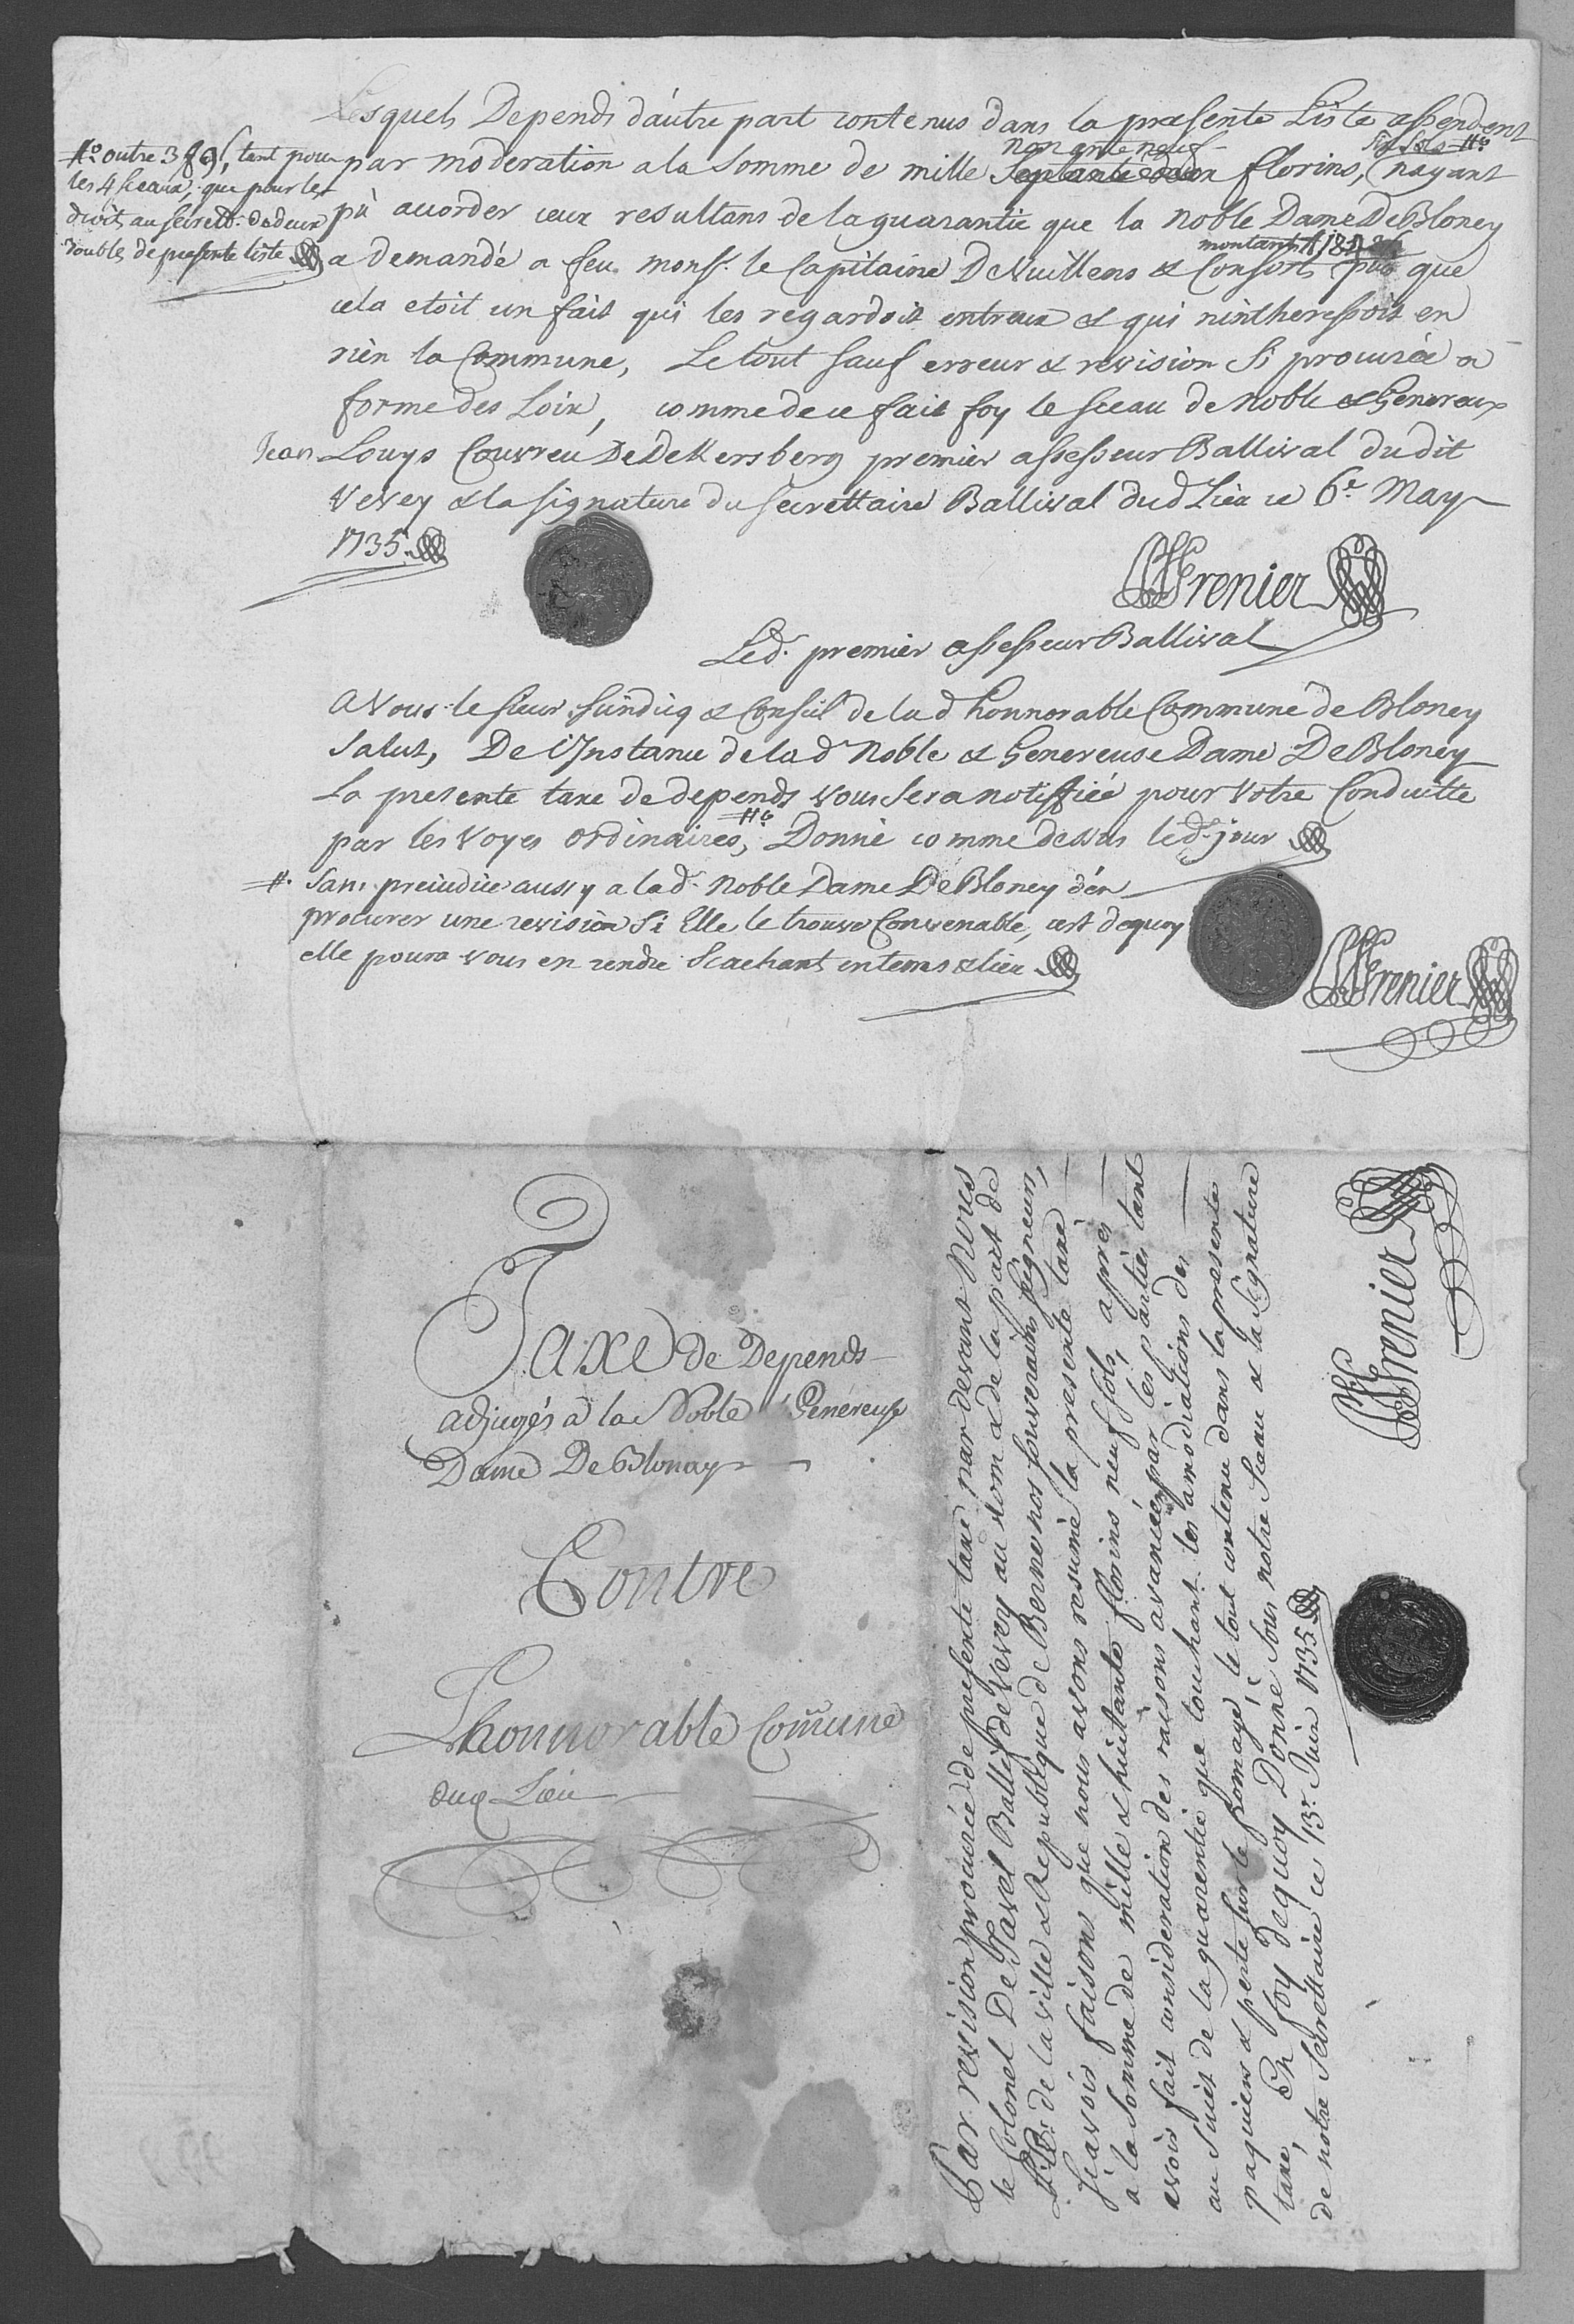 Lesquels Depends dautre part contenus dans la presente Liste assendent
par moderation a la Somme de mille nonante neuf florins, six sols #.o nayant
#.o outre 3 f 9 s, tant pour
les 4 sceaux, que pour les
droits au secrett. de deux
doubles de presente liste
pù accorder ceux resultans de la guarantie que la Noble Dame De Bloney
a demandé a feu Mons.r le Capitaine DeVuillens & Consorts montant que
cela etoit un fait qui les regardoit entreux & qui nintheressoit en
rien la Commune, Le tout sauf erreur & revision si procurée a
forme des Loix, comme de ce fait foy le sceau de Noble & Genereux
Jean Louys Couvreu De Dekersberg premier assesseur Ballival dudit
Vevey & la signature du secrettaire Ballival dud Lieu ce 6.e May
1735.
Grenier
Led. premier assesseur Ballival
A Vous le sieur sindicq & Conseil de lad honnorable Commune de Bloney
Salut, De l'Instance de lad Noble & Genereuse Dame De Bloney
La presente taxe de depends vous sera notiffiée pour Votre Conduitte
par les Voyes ordinaires, #.o Donné comme dessus led. jour
#. sans preiudice aussy a lad. Noble Dame De Bloney d'en
procurer une revision si Elle le trouve Convenable, cest dequoy
elle poura vous en rendre scachant en tems & lieu
Grenier
Taxe de Depends
adjugés à la Noble & Généreuse
Dame De Blonay
Contre
Lhonnorable Comune
dud Lieu
Par revision procurée de presente taxe par devant Nous
le Colonel De Tavel Ballif de Vevey au nom & de la part de
LL.EE. de la ville & Republique de Berne nos souverains seigneurs,
scavoir faisons que nous avons resumé la presente taxe
a la Somme de mille & huitante florins neuf sols, apres
avoir fait consideration des raisons avancées par les parties tant
au suiet de la guarentie que touchant les amodiations des
paquiers & perte sur le fromage, le tout contenu dans la presente
taxe, En foy dequoy Donné sous notre Sceau & la signature
de notre Secrettaire ce 13.e Juin 1735
Grenier